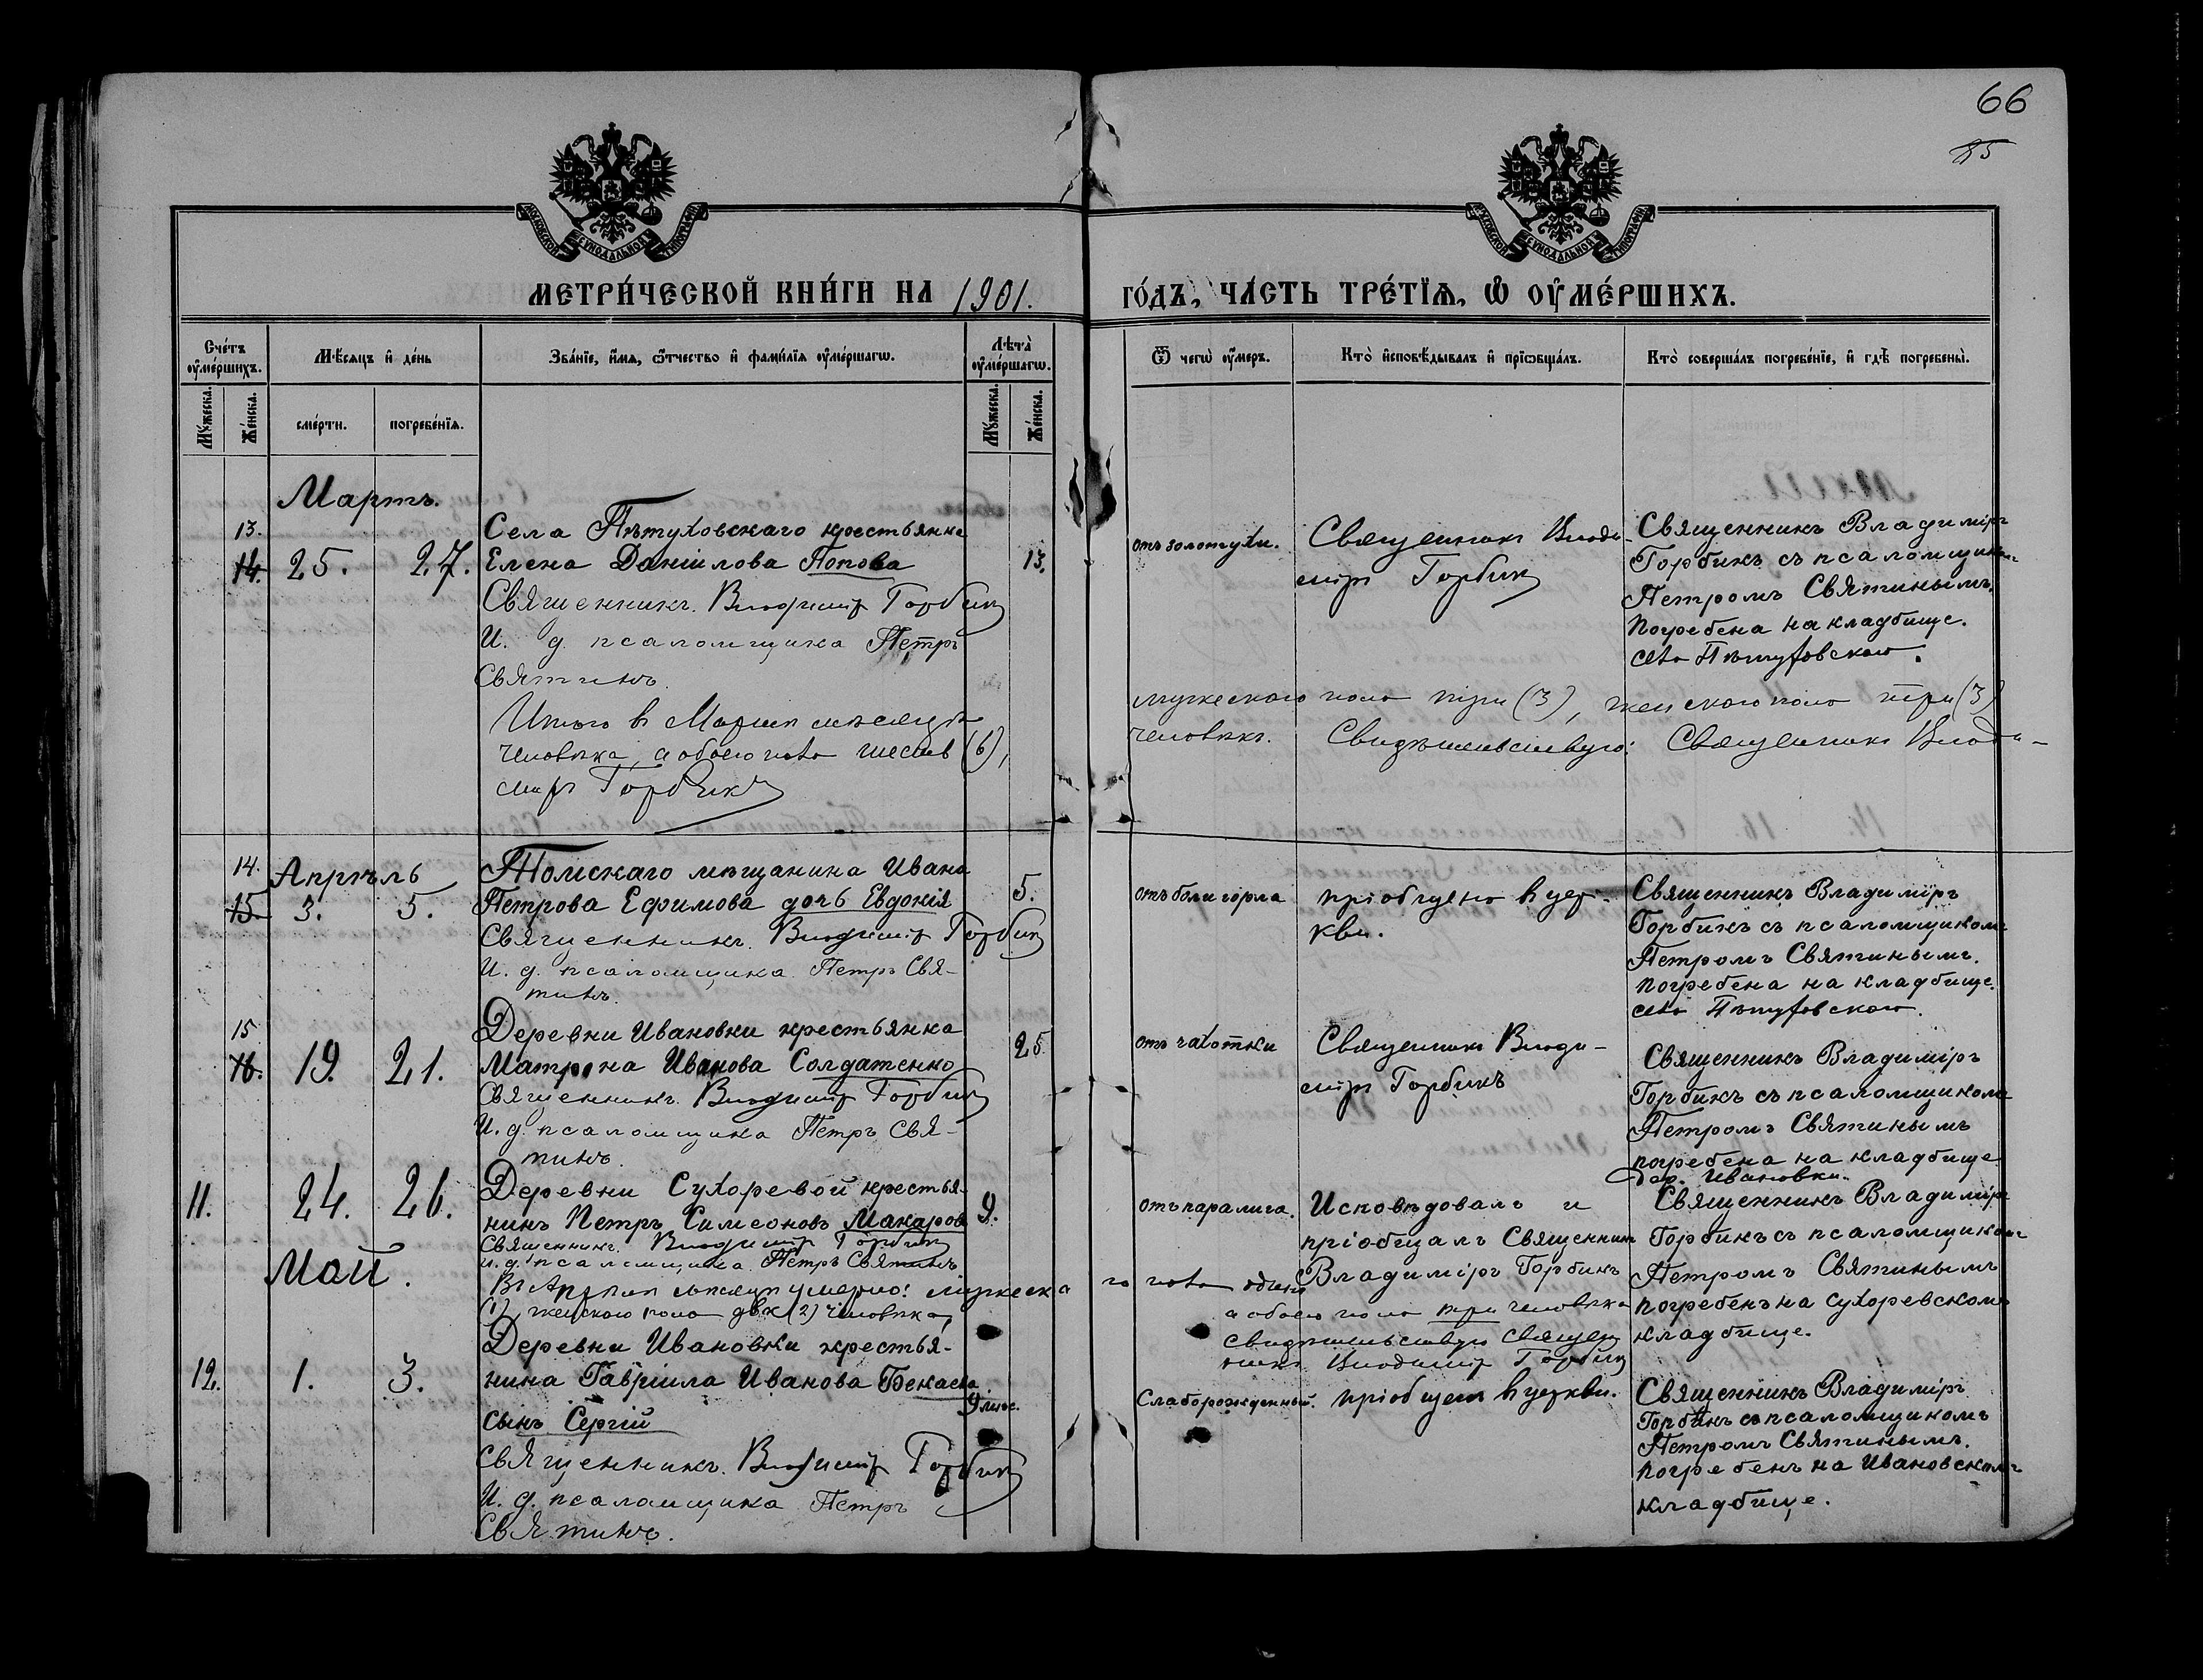 66
85
МОСКОВСКОЙ СѴНОДАЛЬНОЙ ТИПОГРАФІИ
МОСКОВСКОЙ СѴНОДАЛЬНОЙ ТИПОГРАФІИ
МЕТРИ́ЧЕСКОЙ КНИ́ГИ НА 1901.
ГО́ДЪ, ЧА́СТЬ ТРЕ́ТІѦ, Ѽ ОУМЕ́РШИХЪ.
Сче́тъ
оуме́ршихъ.
Мѣ́сяцъ и де́нь
Зва́ніе, и́мя, ѻ́тчество и фами́лія оуме́ршагѡ.
Лѣ́та
оуме́ршагѡ.
Ѿ чегѡ̀ оу́меръ.
Кто̀ и́сповѣ́дывалъ и прїѡбща́лъ.
Кто̀ соверша́лъ погребе́ніе, и гдѣ̀ погребены̀.
Мꙋ́жеска.
Же́нска.
сме́рти.
погребе́нїѧ.
Мꙋ́жеска.
Же́нска.
Мартъ.
13.
14. 25. 27.
Села Пѣтуховскаго крестьянка
Елена Даніилова Попова
13.
Священникъ Владиміръ Горбикъ
И. д. псаломщика Петръ
Святинъ.
отъ золотухи.
Священникъ Влади-
міръ Горбикъ
Священникъ Владиміръ
Горбикъ съ псаломщикомъ
Петромъ Святинымъ.
Погребена на кладбище.
села Пѣтуховскаго.
Итого в Мартѣ мѣсяцѣ
мужескаго пола три (3), женскаго пола три (3)
человѣка, а обоего пола шесть (6),
человѣкъ. Свидѣтельствую: Священникъ Влади-
міръ Горбикъ
14.
Апрѣль
15. 3. 5.
Томскаго мѣщанина Ивана
Петрова Ефимова дочь Евдокія
5.
Священникъ. Владиміръ Горбикъ
И. д. псаломщика Петръ Свя-
тинъ.
отъ боли горла
пріобщена в цер-
кви.
Священникъ Владиміръ
Горбикъ съ псаломщикомъ
Петромъ Святинымъ.
погребена на кладбище.
села Пѣтуховскаго.
15
16. 19. 21.
Деревни Ивановки крестьянка
Матрона Иванова Солдатенко
25
Священникъ. Владиміръ Горбикъ
И. д. псаломщика Петръ Свя-
тинъ.
отъ чахотки
Священникъ Влади-
міръ Горбикъ
Священникъ Владиміръ
Горбикъ съ псаломщикомъ
Петромъ Святинымъ
погребена на кладбище
дер. Ивановки.
11. 24. 26.
Деревни Сухоревой крестья-
нинъ Петръ Симеоновъ Макаровъ
9.
Священникъ. Владиміръ Горбикъ
И. д. псаломщика Петръ Святинъ
отъ паралича.
Исповѣдовалъ и
пріобщалъ Священникъ
Владиміръ Горбикъ
Священникъ Владиміръ
Горбикъ съ псаломщикомъ
Петромъ Святинымъ
погребенъ на Сухоревскомъ
кладбище.
Май.
В Апрѣлѣ мѣсяцѣ умерло: мужеска
го пола одинъ
(1), женскаго пола двѣ (2) человѣка,
а обоего пола три человѣка
свидѣтельствую Священ
никъ Владиміръ Горбикъ
12. 1. 3.
Деревни Ивановки крестья-
нина Гавріила Иванова Бекаева
сынъ Сергій
9 мѣс.
Священникъ. Владиміръ Горбикъ
И. д. псаломщика Петръ
Святинъ.
Слаборожденный.
пріобщенъ в церкви.
Священникъ Владиміръ
Горбикъ съ псаломщикомъ
Петромъ Святинымъ.
погребенъ на Ивановскомъ
кладбище.